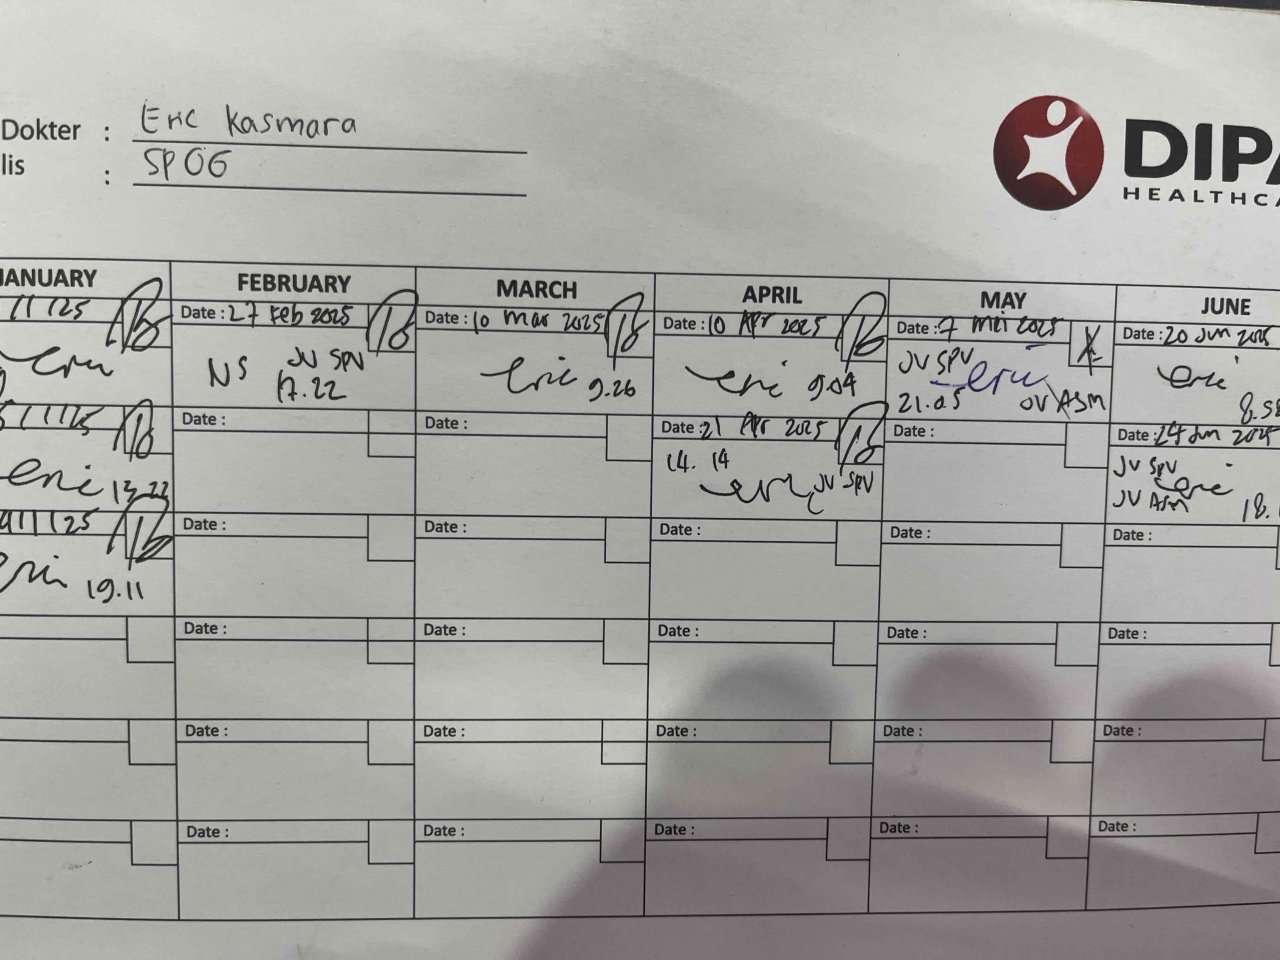 Dokter : Eric Kasmara
lis : SPOG
DIPA
HEALTHCA
JANUARY FEBRUARY MARCH APRIL MAY JUNE
/1/25 Date : 27 Feb 2025 Date : 10 Mar 2025 Date : 10 Apr 2025 Date : 7 Mei 2025 Date : 20 Jun 2025
eric NS JV SPV 17.22 eric 9.26 eric 9.04 JV SPV eric 21.05 OV ASM eric 8.58
/1/25 Date : Date : Date : 21 Apr 2025 Date : Date : 24 Jun 2025
eric 14.14 eric JV SPV JV SPV eric JV ASM 18.
/1/25 Date : Date : Date : Date : Date :
eric 19.11
Date : Date : Date : Date : Date :
Date : Date : Date : Date : Date :
Date : Date : Date : Date : Date :